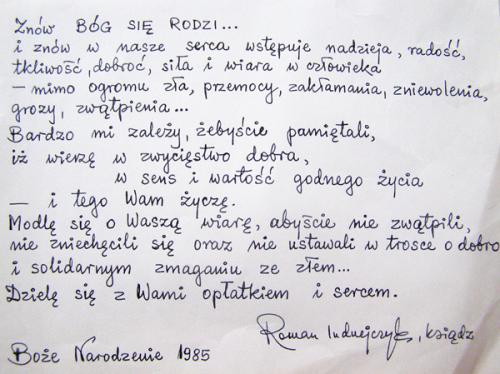 Znów BÓG SIĘ RODZI...
i znów w nasze serca wstępuje nadzieja, radość,
tkliwość, dobroć, siła i wiara w człowieka
— mimo ogromu zła, przemocy, zakłamania, zniewolenia,
grozy, zwątpienia...
Bardzo mi zależy, żebyście pamiętali,
iż wierzę w zwycięstwo dobra,
w sens i wartość godnego życia
— i tego Wam życzę.
Modlę się o Waszą wiarę, abyście nie zwątpili,
nie zniechęcili się oraz nie ustawali w trosce o dobro
i solidarnym zmaganiu ze złem...
Dzielę się z Wami opłatkiem i sercem.
Roman Indrzejczyk, ksiądz
Boże Narodzenie 1985